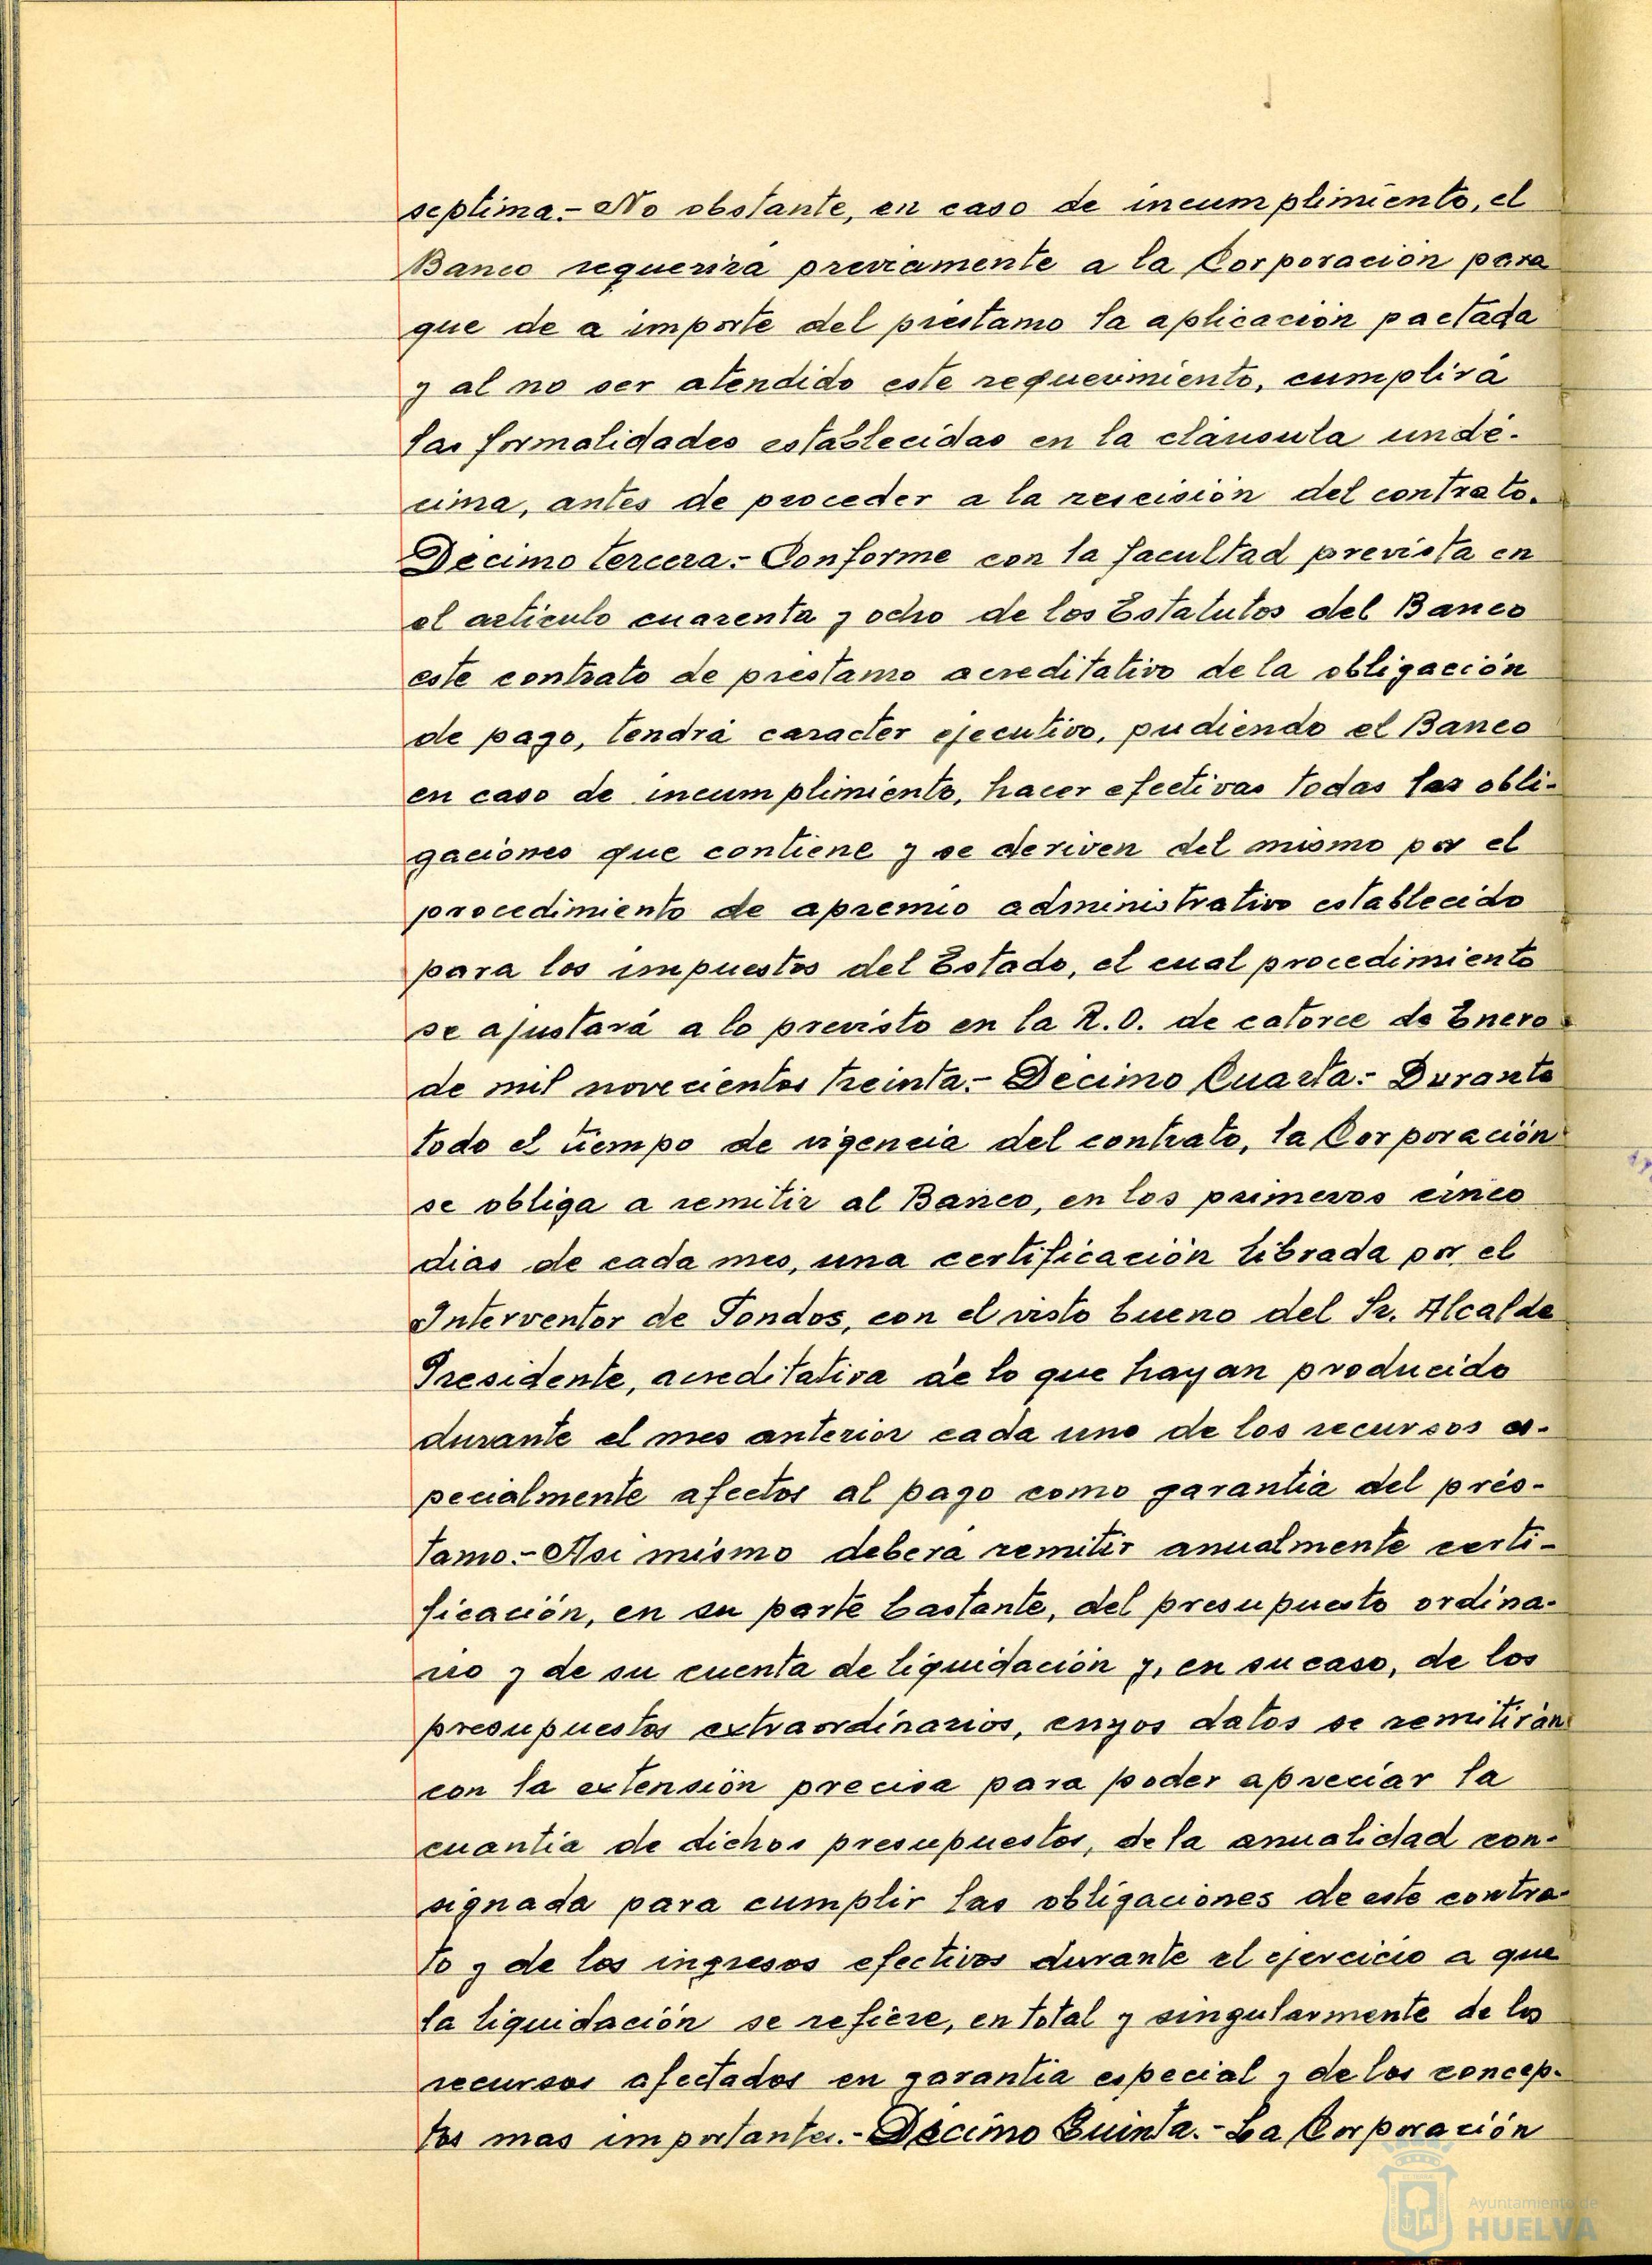 septima.- No obstante, en caso de incumplimiento, el
Banco requerirá previamente a la Corporación para
que de a importe del préstamo la aplicación pactada
y al no ser atendido este requerimiento, cumplirá
las formalidades establecidas en la cláusula undé-
cima, antes de proceder a la rescisión del contrato.
Décimo tercera.- Conforme con la facultad prevista en
el artículo cuarenta y ocho de los Estatutos del Banco
este contrato de préstamo acreditativo de la obligación
de pago, tendrá caracter ejecutivo, pudiendo el Banco
en caso de incumplimiento, hacer efectivas todas las obli-
gaciones que contiene y se deriven del mismo por el
procedimiento de apremio administrativo establecido
para los impuestos del Estado, el cual procedimiento
se ajustará a lo previsto en la R.O. de catorce de Enero
de mil novecientos treinta.- Décimo Cuarta.- Durante
todo el tiempo de vigencia del contrato, la Corporación
se obliga a remitir al Banco, en los primeros cinco
dias de cada mes, una certificación librada por el
Interventor de Fondos, con el visto bueno del Sr. Alcalde
Presidente, acreditativa de lo que hayan producido
durante el mes anterior cada uno de los recursos es-
pecialmente afectos al pago como garantía del prés-
tamo.- Asi mismo deberá remitir anualmente certi-
ficación, en su parte bastante, del presupuesto ordina-
rio y de su cuenta de liquidación y, en su caso, de los
presupuestos extraordinarios, cuyos datos se remitirán
con la extensión precisa para poder apreciar la
cuantía de dichos presupuestos, de la anualidad con-
signada para cumplir las obligaciones de este contra-
to y de los ingresos efectivos durante el ejercicio a que
la liquidación se refiere, en total y singularmente de los
recursos afectados en garantía especial y de los concep-
tos mas importantes.- Décimo Quinta.- La Corporación
Ayuntamiento de
HUELVA